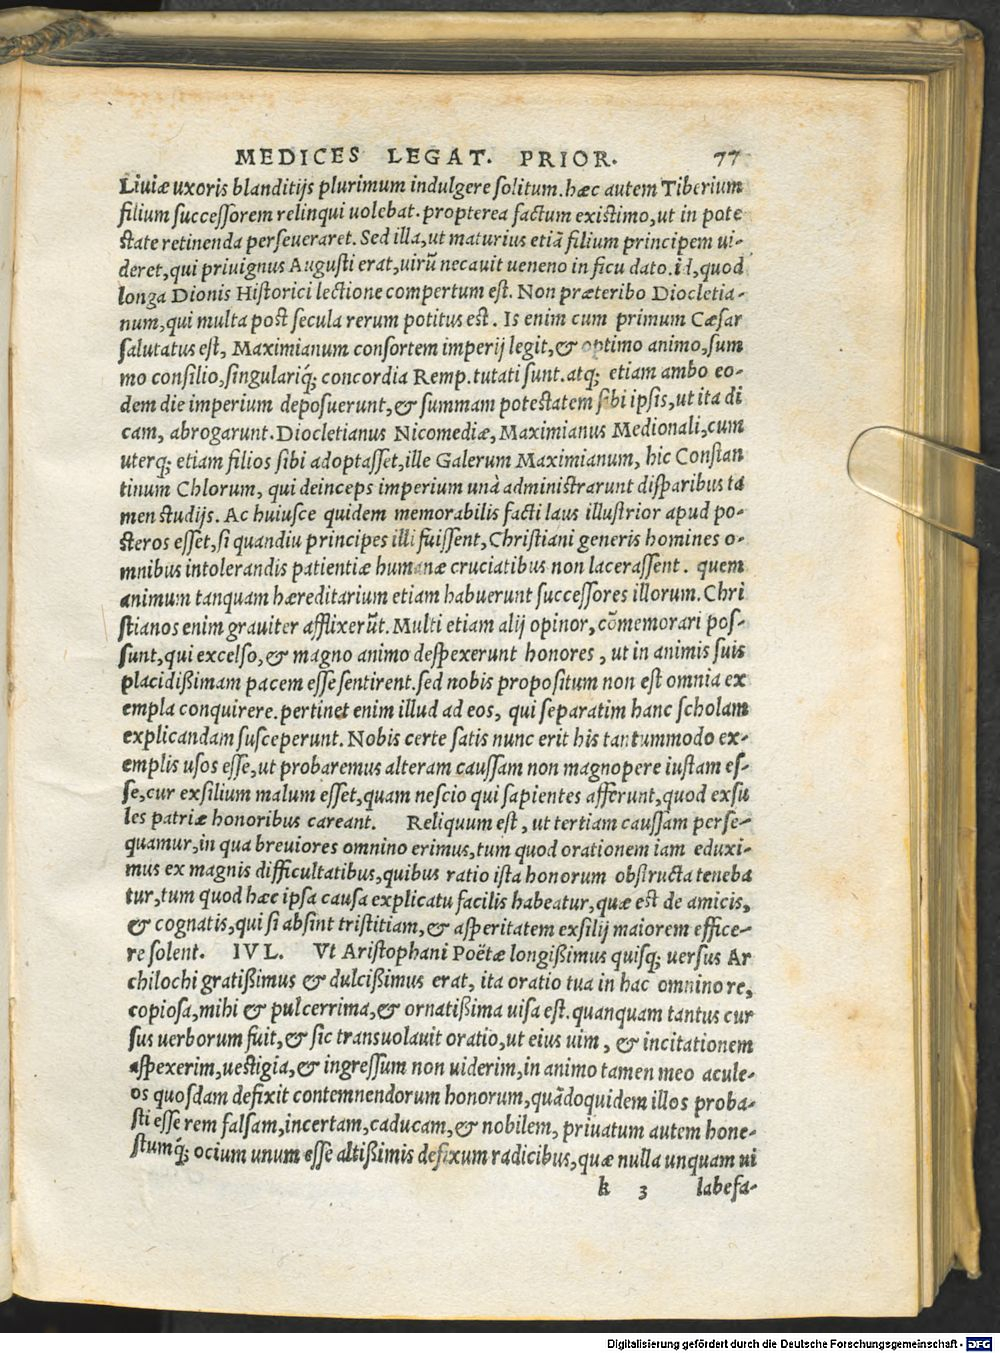 MEDICES LEGAT. PRIOR. 77
Liuiæ uxoris blanditijs plurimum indulgere solitum. hæc autem Tiberium
filium successorem relinqui uolebat. propterea factum existimo, ut in pote
state retinenda perseueraret. Sed illa, ut maturius etiã filium principem ui-
deret, qui priuignus Augusti erat, uirũ necauit ueneno in ficu dato. id, quod
longa Dionis Historici lectione compertum est. Non præteribo Diocletia-
num, qui multa post secula rerum potitus est. Is enim cum primum Cæsar
salutatus est, Maximianum consortem imperij legit, & optimo animo, sum
mo consilio, singulariq́; concordia Remp. tutati sunt. atq; etiam ambo eo-
dem die imperium deposuerunt, & summam potestatem sibi ipsis, ut ita di
cam, abrogarunt. Diocletianus Nicomediæ, Maximianus Medionali, cum
uterq; etiam filios sibi adoptasset, ille Galerum Maximianum, hic Constan
tinum Chlorum, qui deinceps imperium unà administrarunt disparibus ta
men studijs. Ac huiusce quidem memorabilis facti laus illustrior apud po-
steros esset, si quandiu principes illi fuissent, Christiani generis homines o-
mnibus intolerandis patientiæ humanæ cruciatibus non lacerassent. quem
animum tanquam hæreditarium etiam habuerunt successores illorum. Chri
stianos enim grauiter afflixerũt. Multi etiam alij opinor, cõmemorari pos-
sunt, qui excelso, & magno animo despexerunt honores, ut in animis suis
placidißimam pacem esse sentirent. sed nobis propositum non est omnia ex
empla conquirere. pertinet enim illud ad eos, qui separatim hanc scholam
explicandam susceperunt. Nobis certe satis nunc erit his tantummodo ex-
emplis usos esse, ut probaremus alteram caussam non magnopere iustam es-
se, cur exsilium malum esset, quam nescio qui sapientes afferunt, quod exsu
les patriæ honoribus careant. Reliquum est, ut tertiam caussam perse-
quamur, in qua breuiores omnino erimus, tum quod orationem iam eduxi-
mus ex magnis difficultatibus, quibus ratio ista honorum obstructa teneba
tur, tum quod hæc ipsa causa explicatu facilis habeatur, quæ est de amicis,
& cognatis, qui si absint tristitiam, & asperitatem exsilij maiorem effice-
re solent. IVL. Vt Aristophani Poëtæ longißimus quisq; uersus Ar
chilochi gratißimus & dulcißimus erat, ita oratio tua in hac omnino re,
copiosa, mihi & pulcerrima, & ornatißima uisa est. quanquam tantus cur
sus uerborum fuit, & sic transuolauit oratio, ut eius uim, & incitationem
aspexerim, uestigia, & ingressum non uiderim, in animo tamen meo acule-
os quosdam defixit contemnendorum honorum, quãdoquidem illos proba-
sti esse rem falsam, incertam, caducam, & nobilem, priuatum autem hone-
stumq́; ocium unum esse altißimis defixum radicibus, quæ nulla unquam ui
k 3 labefa-
Digitalisierung gefördert durch die Deutsche Forschungsgemeinschaft - DFG